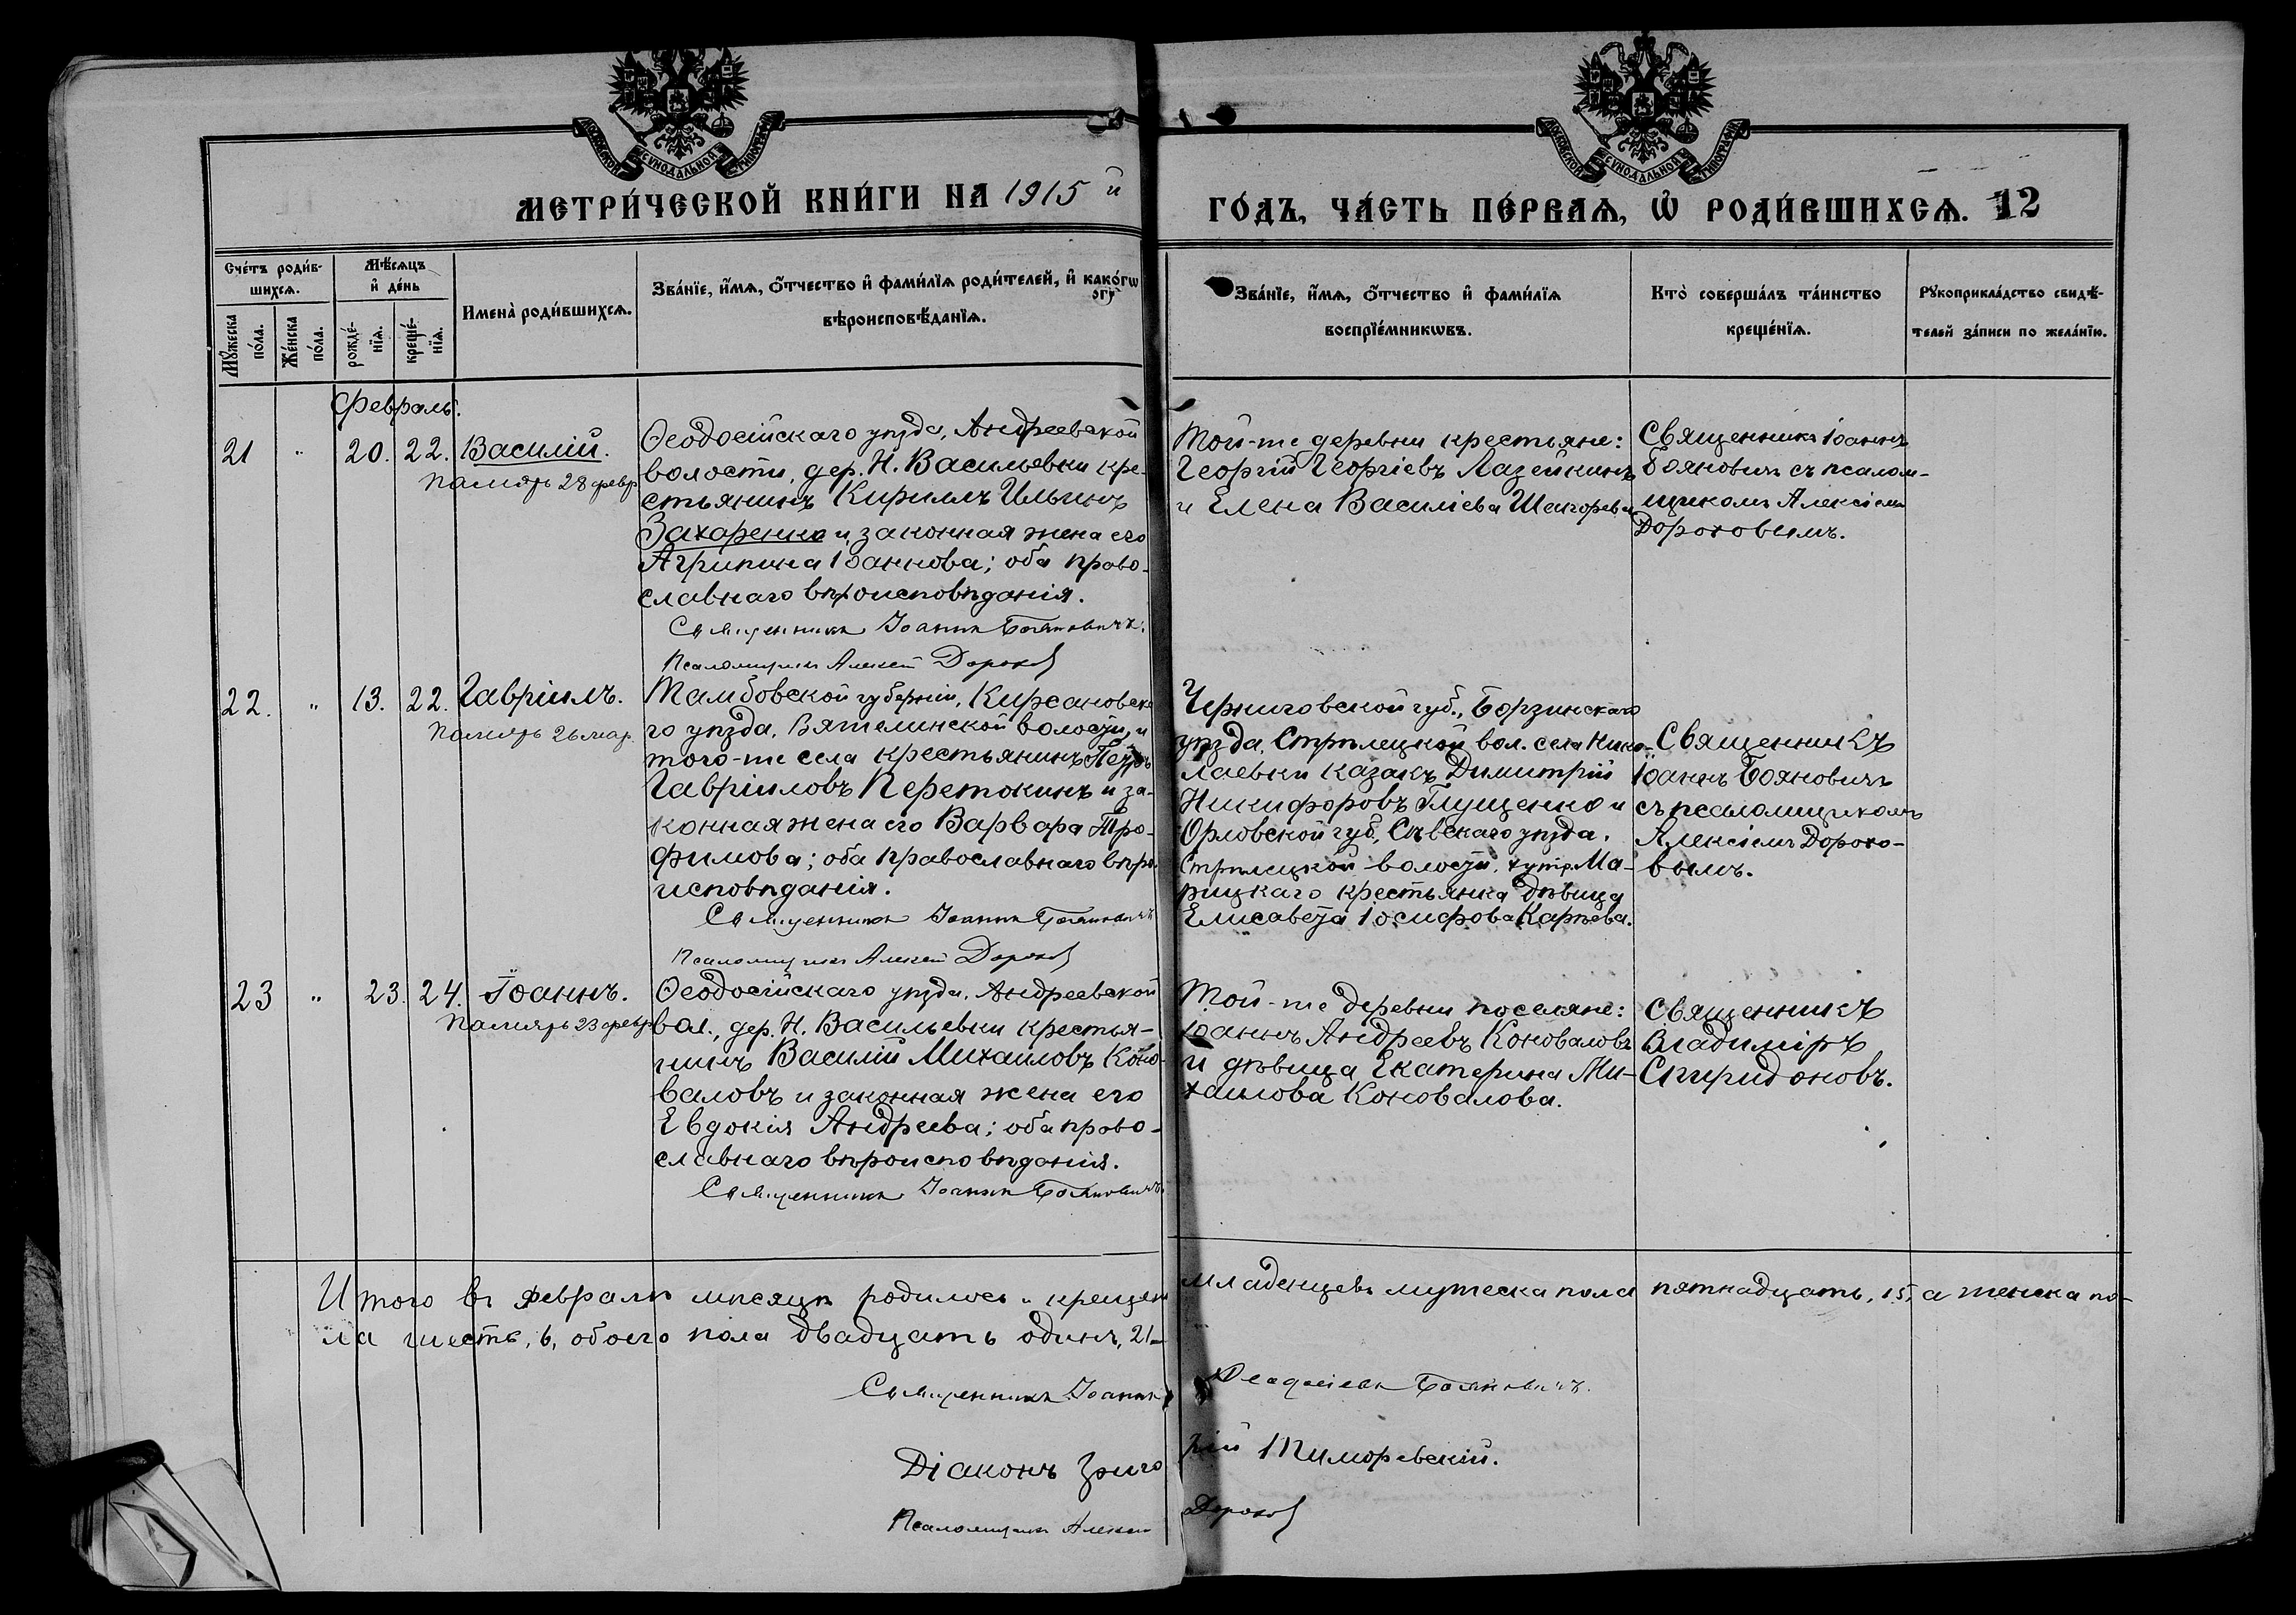 МОСКОВСКОЙ СѴНОДАЛЬНОЙ ТИПОГРАФІИ
МОСКОВСКОЙ СѴНОДАЛЬНОЙ ТИПОГРАФІИ
МЕТРИ́ЧЕСКОЙ КНИ́ГИ НА 1915 й
ГО́ДЪ, ЧА́СТЬ ПЕ́РВАѦ, Ѡ҆ РОДИ́ВШИХСѦ. 12
Сче́тъ роди́в-
шихсѧ.
Мѣ́сѧцъ
и҆ де́нь
Мꙋ́жеска по́ла.
Же́нска по́ла.
рожде́-
нїѧ.
креще́-
нїѧ.
Имена̀ роди́вшихсѧ.
Зва́нїе, и҆́мѧ, ѻ҆́тчество и҆ фами́лїѧ роди́телей, и҆ како́гѡ
вѣроисповѣ́данїѧ.
Зва́нїе, и҆́мѧ, ѻ҆́тчество и҆ фами́лїѧ
воспрїе́мникѡвъ.
Кто̀ соверша́лъ та́инство
креще́нїѧ.
Рꙋкоприкла́дство свидѣ́-
телей за́писи по жела́нїю.
Февраль.
21 " 20. 22. Василій.
Память 28 февр.
Ѳеодосійскаго уѣзда, Андреевской
волости, дер. Н. Васильевки кре-
стьянинъ Кириллъ Ильинъ
Захаренко и законная жена его
Агрипина Іоаннова; оба право-
славнаго вѣроисповѣданія.
Священникъ Іоаннъ Бояновичъ.
Псаломщикъ Алексей Дорохов
Той-же деревни крестьяне:
Георгій Георгіевъ Лазейкинъ
и Елена Василіева
Священникъ Іоаннъ
Бояновичъ съ псалом-
щикомъ Алексіемъ
Дороховымъ.
22. " 13. 22. Гавріилъ.
Память 26 мар.
Тамбовской губерніи, Кирсановска-
го уѣзда, Вяжелинской волости, и
того-же села крестьянинъ Петръ
Гавріиловъ Перетокинъ и за-
конная жена его Варвара Тро-
фимова; оба православнаго вѣро-
исповѣданія.
Священникъ Іоаннъ Бояновичъ
Псаломщикъ Алексей Дорохов
Черниговской губ., Борзинскаго
уѣзда, Стрѣлецкой вол. села Нико-
лаевки казакъ Димитрій
Никифоровъ Глущенко и
Орловской губ., Сѣвскаго уѣзда,
Стрѣлецкой волости, хутр. Ма-
рицкаго крестьянка дѣвица
Елисавета Іосифова Карпева.
Священникъ
Іоаннъ Бояновичъ
съ псаломщикомъ
Алексіемъ Дорохо-
вымъ.
23 " 23. 24. Іоаннъ.
Память 23 февр.
Ѳеодосійскаго уѣзда, Андреевской
вол., дер. Н. Васильевки крестья-
нинъ Василій Михаиловъ Коно-
валовъ и законная жена его
Евдокія Андреева; оба право-
славнаго вѣроисповѣданія.
Священникъ Іоаннъ Бояновичъ
Той-же деревни поселяне:
Іоаннъ Андреевъ Коноваловъ
и дѣвица Екатерина Ми-
хаилова Коновалова.
Священникъ
Владиміръ
Спиридоновъ.
Итого въ февралѣ мѣсяцѣ родилось и крещен младенцевъ мужеска пола пятнадцать, 15, а женска по-
ла шесть, 6, обоего пола двадцать одинъ, 21
Священникъ Іоаннъ Бояновичъ.
Діаконъ Григорій
Псаломщикъ Алексей Дорохов